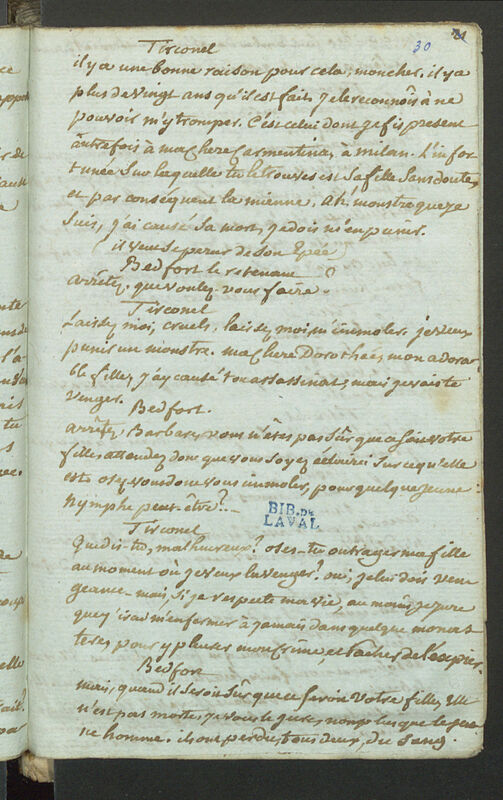 30
Tirconel
il y a une bonne raison pour cela, mon cher, il y a
plus de vingt ans qu'il est fait, je le reconnois à ne
pouvoir m'y tromper. C'est celui dont je fis present
autrefois à ma chere Carmentina, à milan. L'infor
tunée sur laquelle tu le trouves est sa fille sans doute,
et par conséquent la mienne. Ah! monstre que je
suis, j'ai causé sa mort, je dois m'en punir.
il veut se percer de son Epée
Bedfort le retenant
arrêtez, que voulez-vous faire?
Tirconel
Laissez moi, cruels, laissez moi m'immoler. je veux
punir un monstre. ma chere Dorothée, mon adora
ble fille, j'ay causé ton assassinat, mais je vais te
venger.
Bedfort.
arrêtez, Barbare, vous n'êtes pas sûr que ce soit votre
fille, attendez donc que vous soyez éclairci sur ce qu'elle
est. osez-vous donc vous immoler, pour quelque jeune
Nymphe peut-être?
BIB. DE
LAVAL
Tirconel
Que dis-tu, malheureux? oses-tu outrager ma fille
au moment où je veux la venger? oui, je lui dois ven
geance. mais, si je respecte ma vie, au moins je jure
que j'irai m'enfermer à jamais dans quelque monas
tere, pour y pleurer mon crime, et tacher de l'expier.
Bedfort
mais, quand il seroit sûr que ce seroit votre fille, elle
n'est pas morte, je vous le jure, non plus que le jeu
ne homme. ils ont perdu, tous deux, du sang.